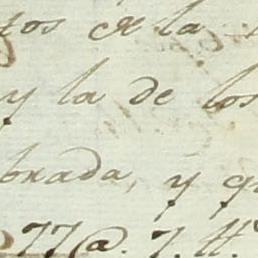 tos de la
y la de los
brada, y q
77@. 7. ff.